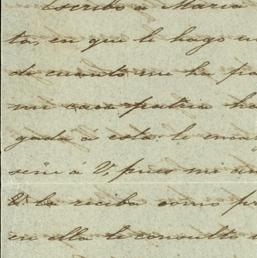 Escribo a Maria
ta, en que le hago
do cuanto me ha pa
mi cara patria ha
gada á esta: le enca
señe á V, pues mi
V la reciba como pr
en ella le consulto